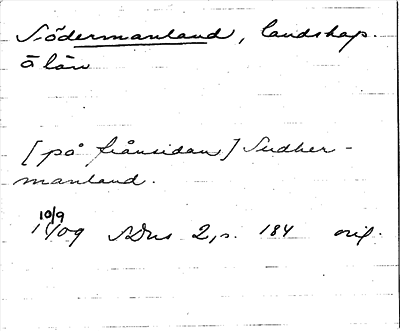 Södermanland, landskap.
o län
[på frånsidan] Sudher-
manland.
10/9
1409 SDns 2, s. 184 orig.